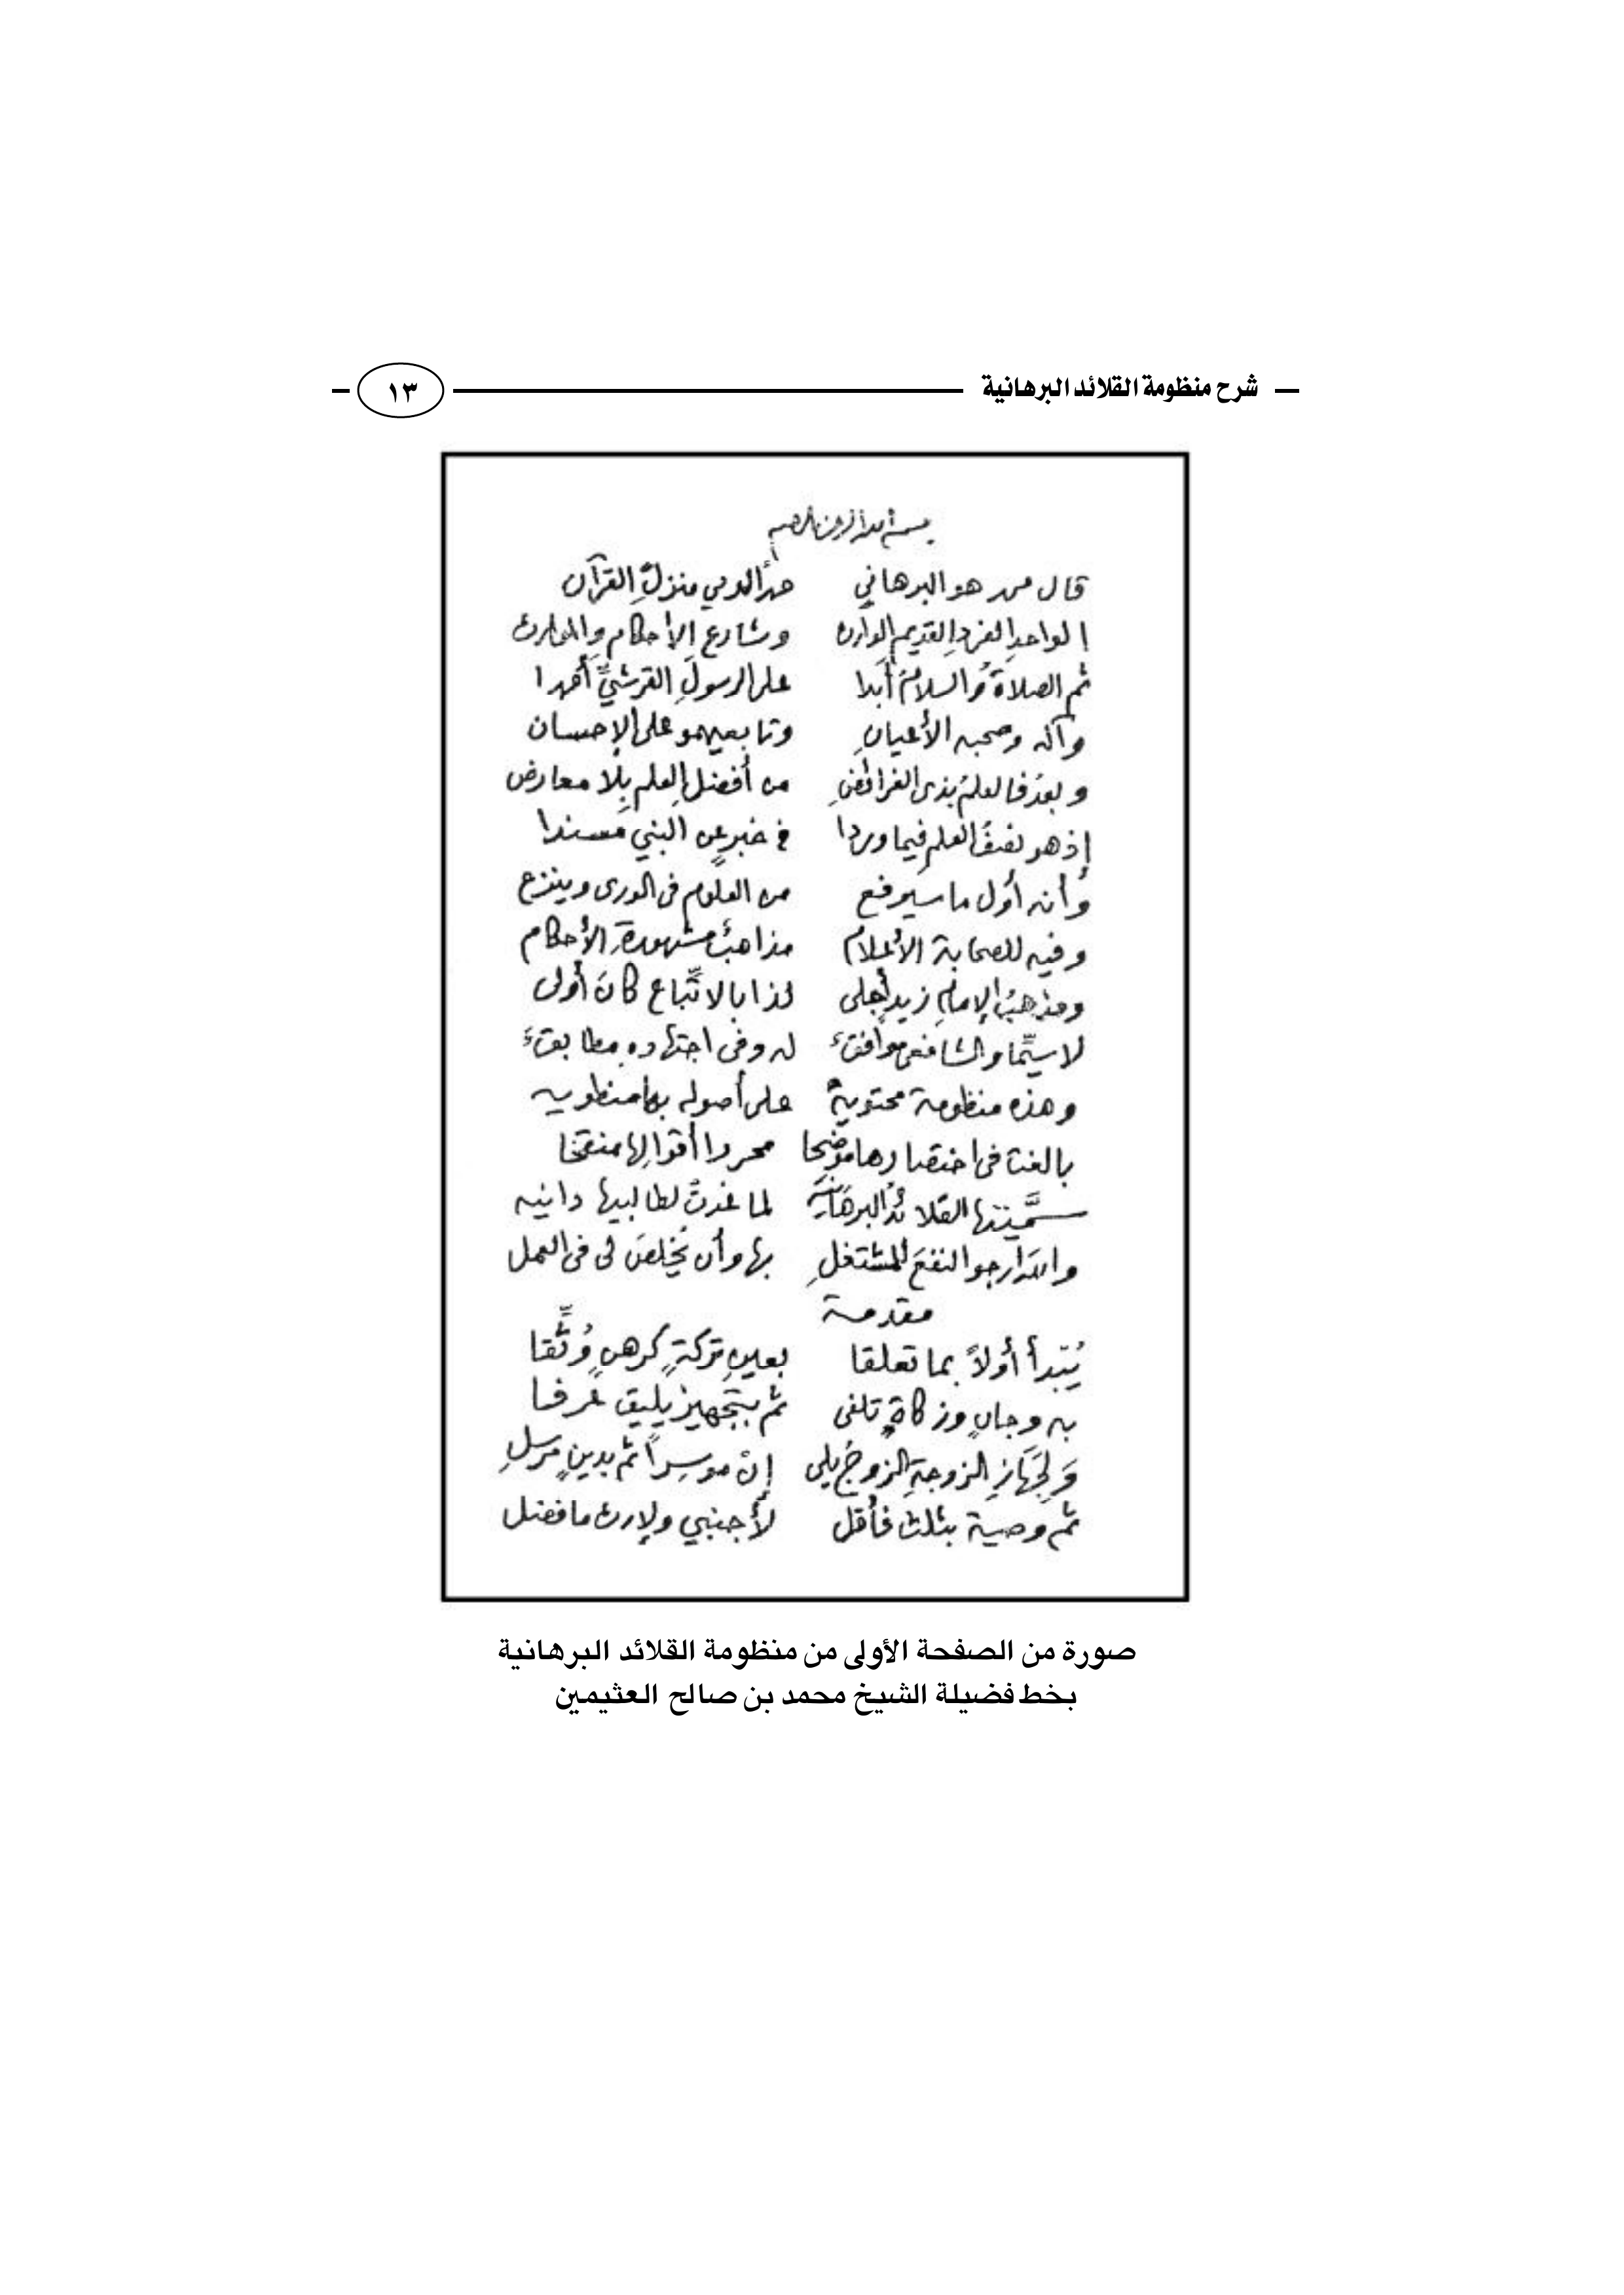 شرح منظومة القلائد البرهانية
١٣
بسم الله الرحمن الرحيم
قال محمد هو البرهاني حمداً لربي منزلِ القرآن
الواحدِ الفردِ القديمِ الوارث وشارع الأحكام والموارث
ثم الصلاةُ والسلامُ أبدا على الرسولِ القرشيِّ أحمدا
وآله وصحبه الأعيانِ وتابعيهمو على الإحسان
وبعدُ فالعلمُ بذي الفرائضِ من أفضل العلم بلا معارض
إذ هو نصفُ العلمِ فيما وردا في خبرٍ عن النبي مسندا
وأنه أول ما سيرفع من العلوم في الورى وينزع
وفيه للصحابة الأعلامِ مذاهبٌ مشهورةُ الأحكام
ومذهبُ الإمامِ زيدٍ أجلى لذا بالاتِّباع كانَ أولى
لا سيَّما والشافعي موافقُ له وفي اجتهاده مطابقُ
وهذه منظومة محتويةٌ على أصوله بها منطويه
بالغت في اختصارها موضِّحا محررا أقوالها منقحا
سمَّيتها القلائدَ البرهانيَّة لما غدتْ لطالبيها دانيه
واللهَ أرجو النفعَ للمشتغلِ بها وأن يُخلِصَ لي في العمل
مقدمة
يُبْدأُ أولاً بما تعلقا بعينِ تركةٍ كرهنٍ وُثِّقا
به وجانٍ وزكاةٍ تلفى ثم بتجهيزٍ يليق عُرفا
وَلِجَهَازِ الزوجةِ الزوجُ يلي إن موسِراً ثم بدينٍ مرسلِ
ثم وصية بثلث فأقل لأجنبي ولإرث ما فضل
صورة من الصفحة الأولى من منظومة القلائد البرهانية
بخط فضيلة الشيخ محمد بن صالح العثيمين